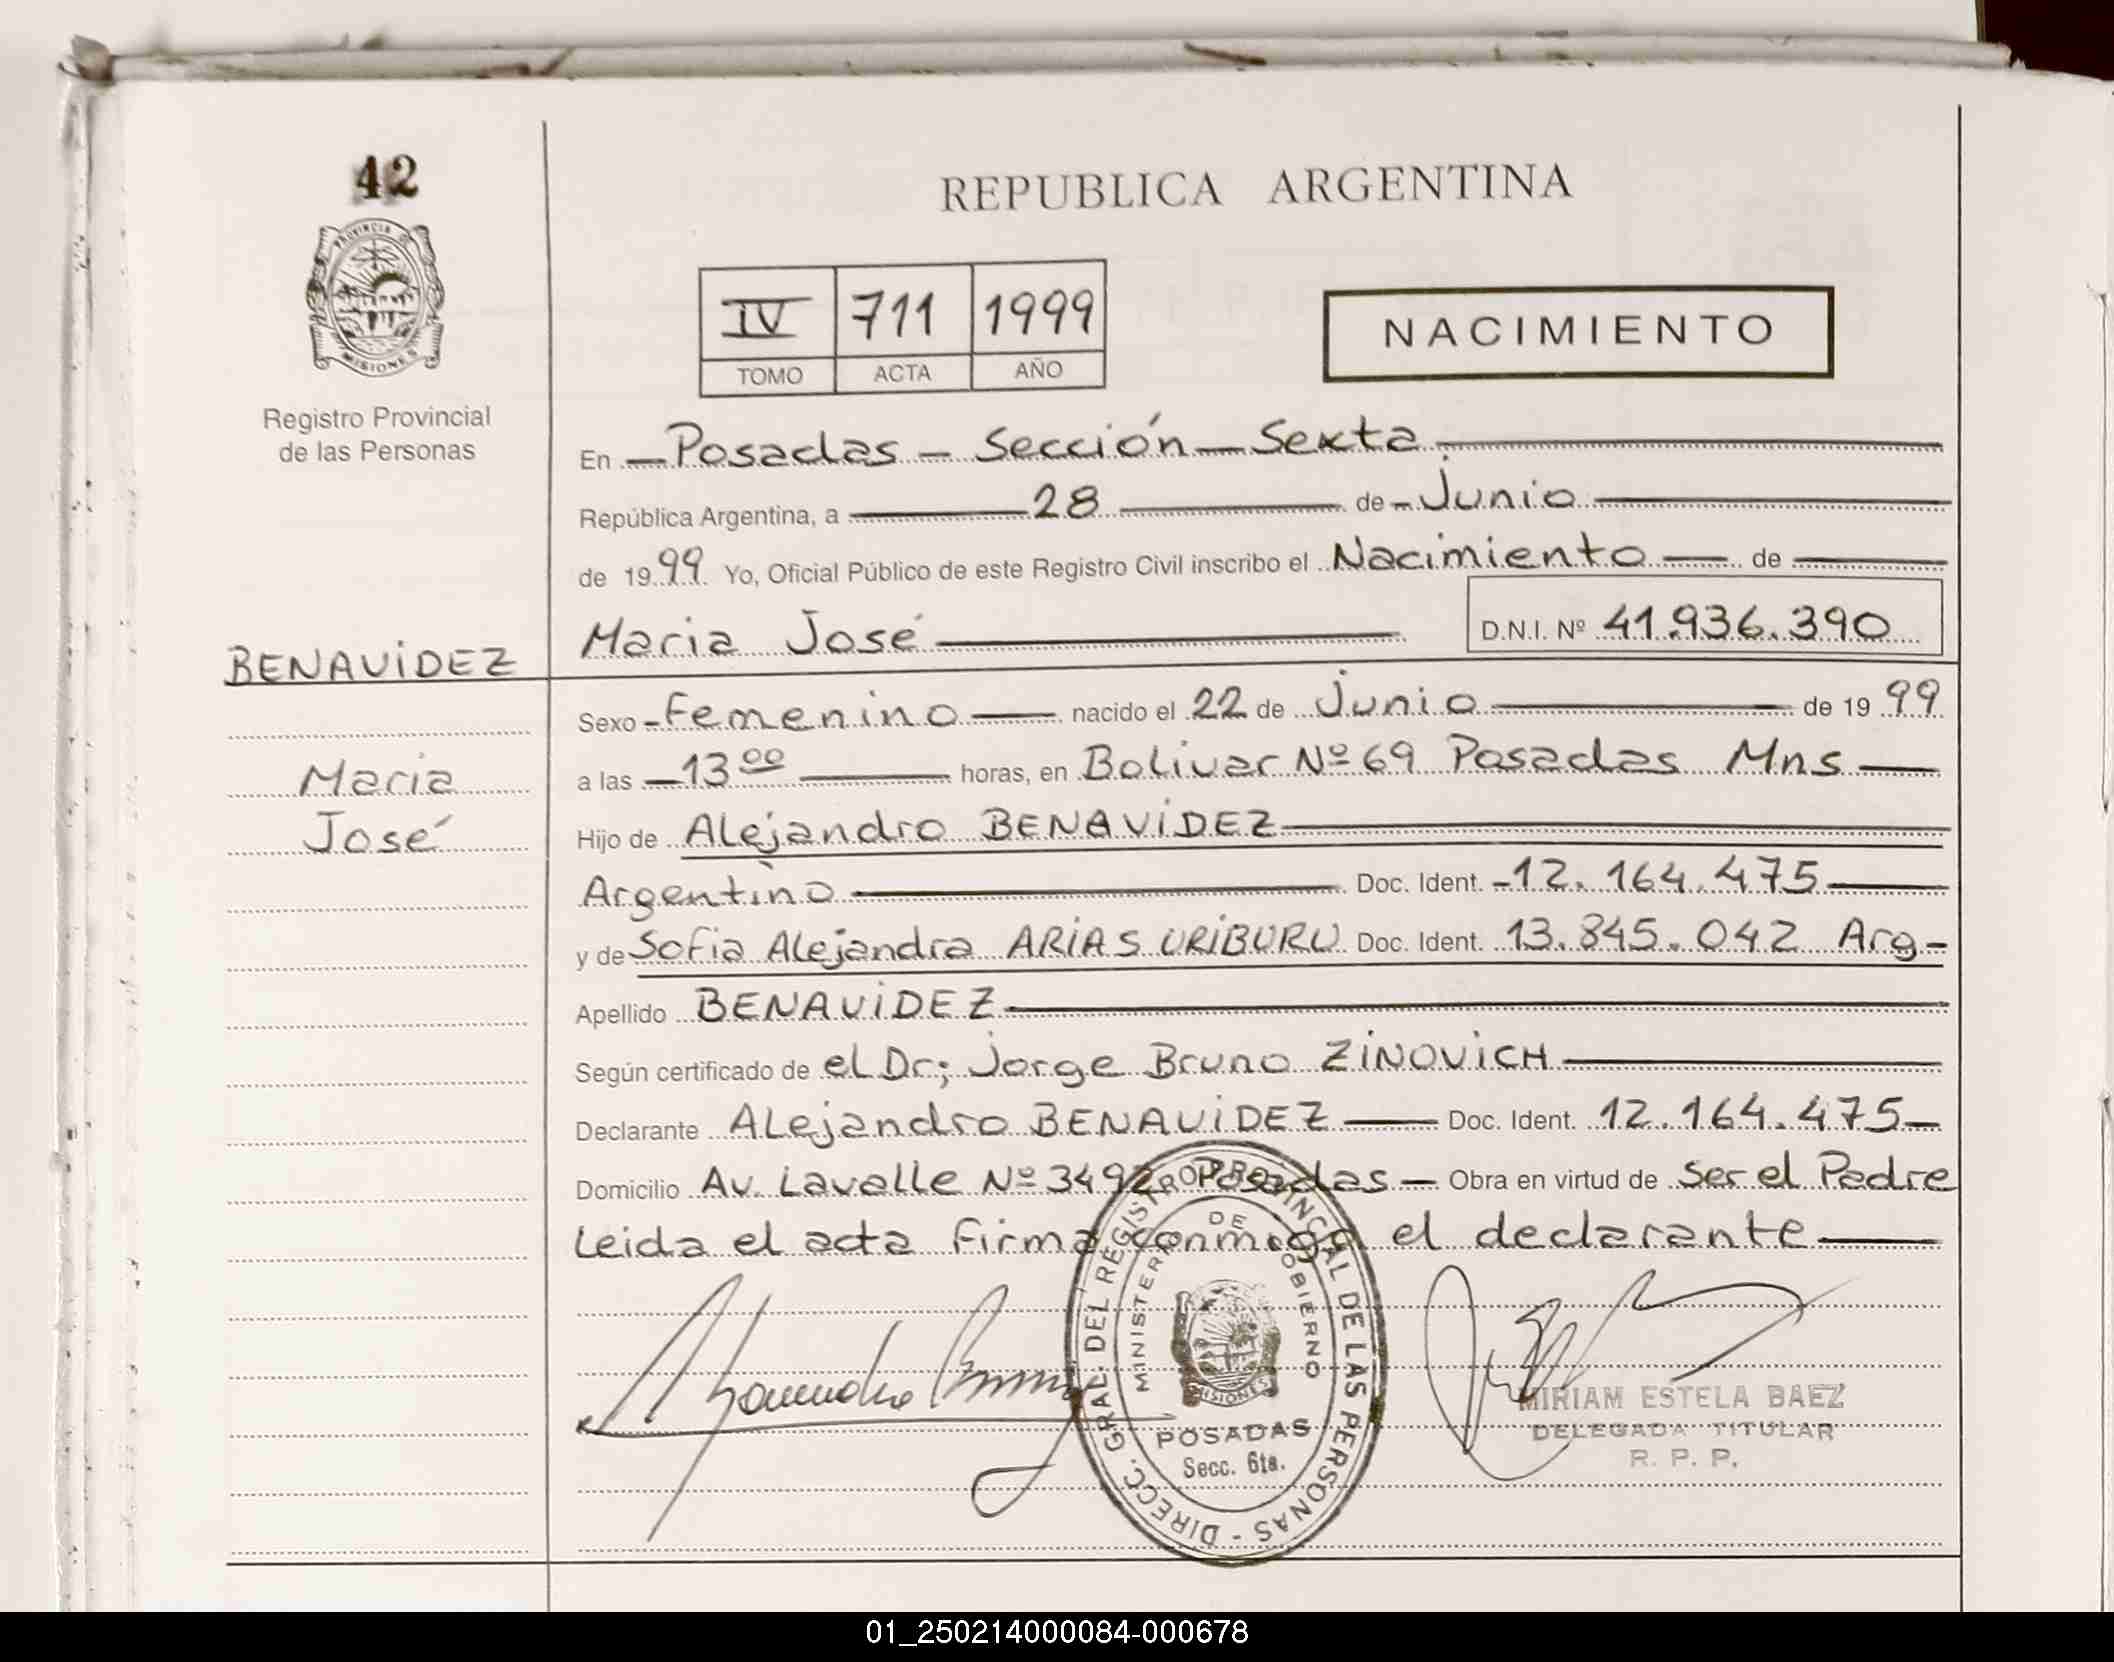 42
PROVINCIA DE
MISIONES
Registro Provincial
de las Personas
REPUBLICA ARGENTINA
IV 711 1999
TOMO ACTA AÑO
NACIMIENTO
En Posadas - Sección - Sexta
República Argentina, a 28 de Junio
de 1999 Yo, Oficial Público de este Registro Civil inscribo el Nacimiento de
Maria José D.N.I. Nº 41.936.390
BENAVIDEZ
Maria
José
Sexo Femenino nacido el 22 de Junio de 1999
a las 13 00 horas, en Bolivar Nº 69 Posadas Mns
Hijo de Alejandro BENAVIDEZ
Argentino Doc. Ident. 12.164.475
y de Sofia Alejandra ARIAS URIBURU Doc. Ident. 13.845.042 Arg-
Apellido BENAVIDEZ
Según certificado de el Dr; Jorge Bruno ZINOVICH
Declarante Alejandro BENAVIDEZ Doc. Ident. 12.164.475
Domicilio Av. Lavalle Nº 3492 Posadas Obra en virtud de Ser el Padre
Leida el acta firma conmigo el declarante
DIRECC. GRAL. DEL REGISTRO PROVINCIAL DE LAS PERSONAS -
MINISTERIO DE GOBIERNO
MISIONES
POSADAS
Secc. 6ta.
MIRIAM ESTELA BAEZ
DELEGADA TITULAR
R. P. P.
01_250214000084-000678